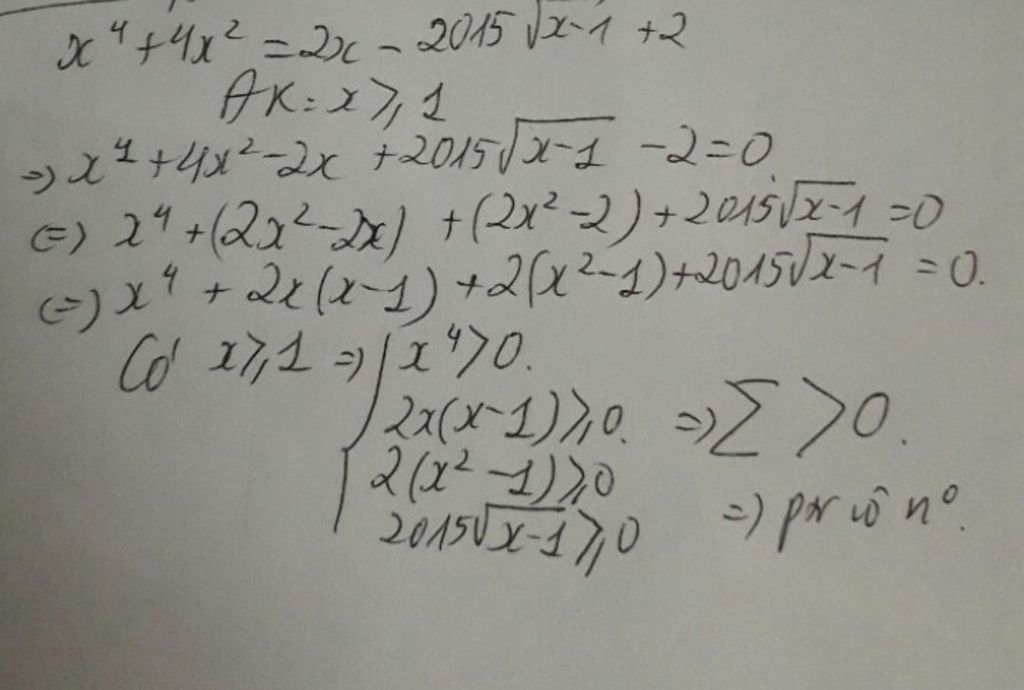 x⁴ + 4x² = 2x - 2015√(x-1) + 2
ĐK: x ⩾ 1
⇒ x⁴ + 4x² - 2x + 2015√(x-1) - 2 = 0
⇔ x⁴ + (2x² - 2x) + (2x² - 2) + 2015√(x-1) = 0
⇔ x⁴ + 2x(x-1) + 2(x²-1) + 2015√(x-1) = 0.
Có x ⩾ 1 ⇒ { x⁴ > 0.
2x(x-1) ⩾ 0. ⇒ ∑ > 0.
2(x² - 1) ⩾ 0
2015√(x-1) ⩾ 0 ⇒ pt vô n⁰.